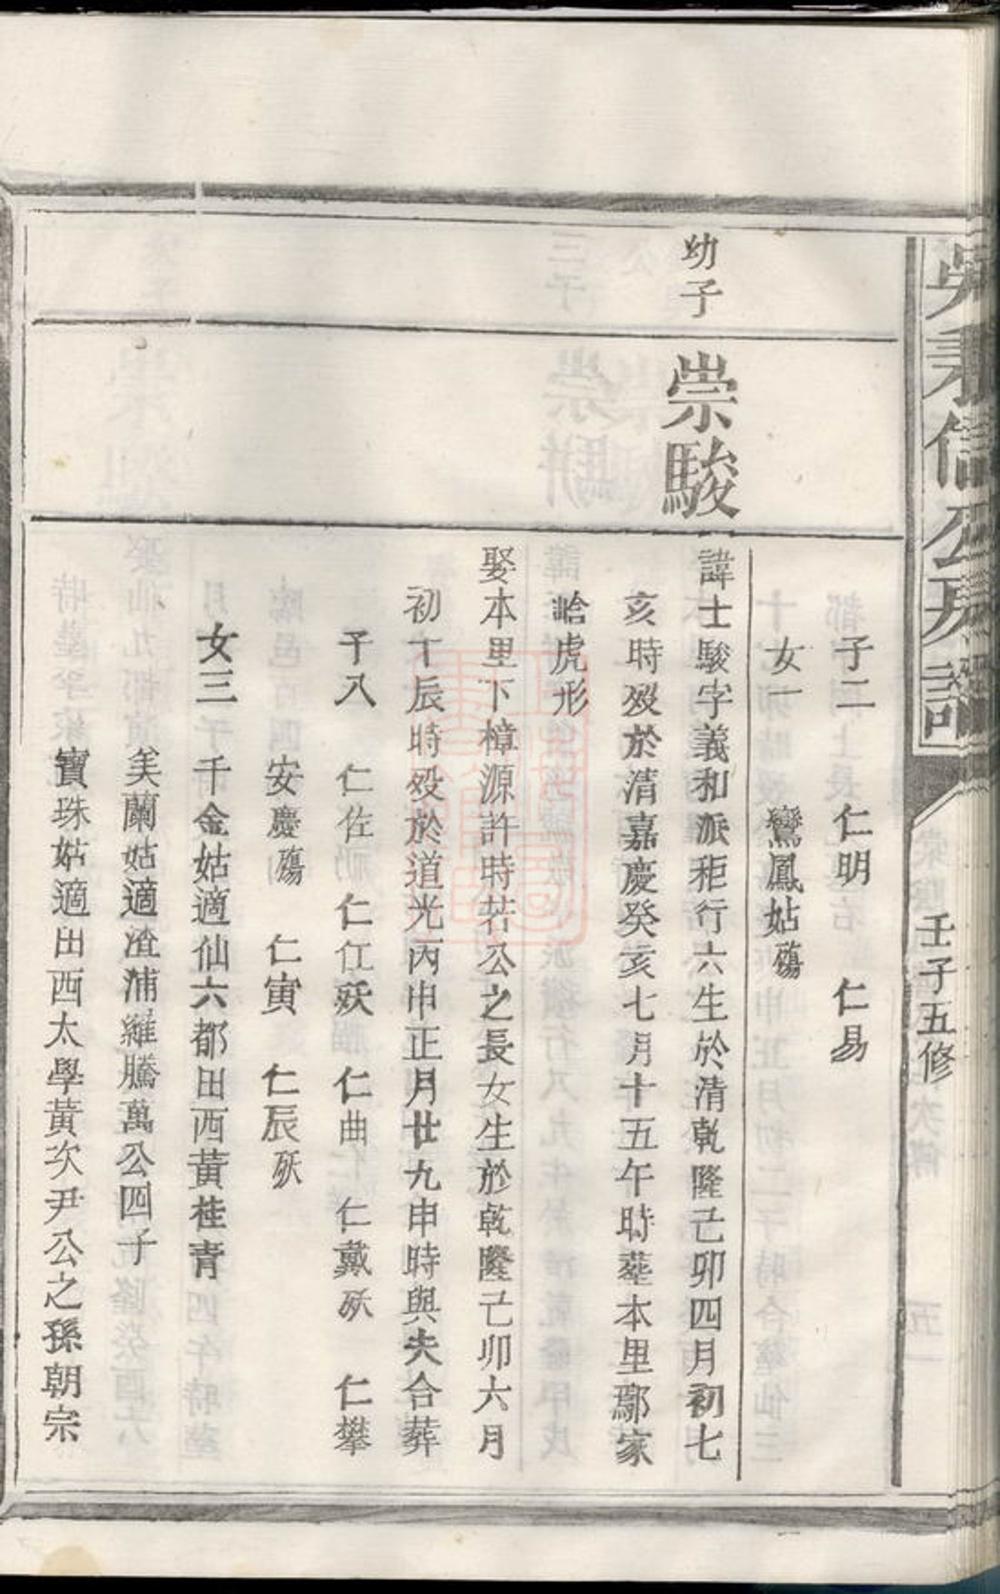 吳秉信公房譜
壬子五修
子二 仁明 仁易
女一 鸞鳳姑殤
幼子
崇駿
諱士駿字義和派秬行六生於清乾隆己卯四月初七
亥時歿於清嘉慶癸亥七月十五午時塟本里鄢家
峆虎形
娶本里下樟源許時若公之長女生於乾隆己卯六月
初丁辰時歿於道光丙申正月廿九申時與夫合葬
子八 仁佐 仁江殀 仁曲 仁戴殀 仁攀
安慶殤 仁寅 仁辰殀
女三 千金姑適仙六都田西黃桂青
美蘭姑適渣浦維騰萬公四子
寶珠姑適田西太學黃次尹公之孫朝宗